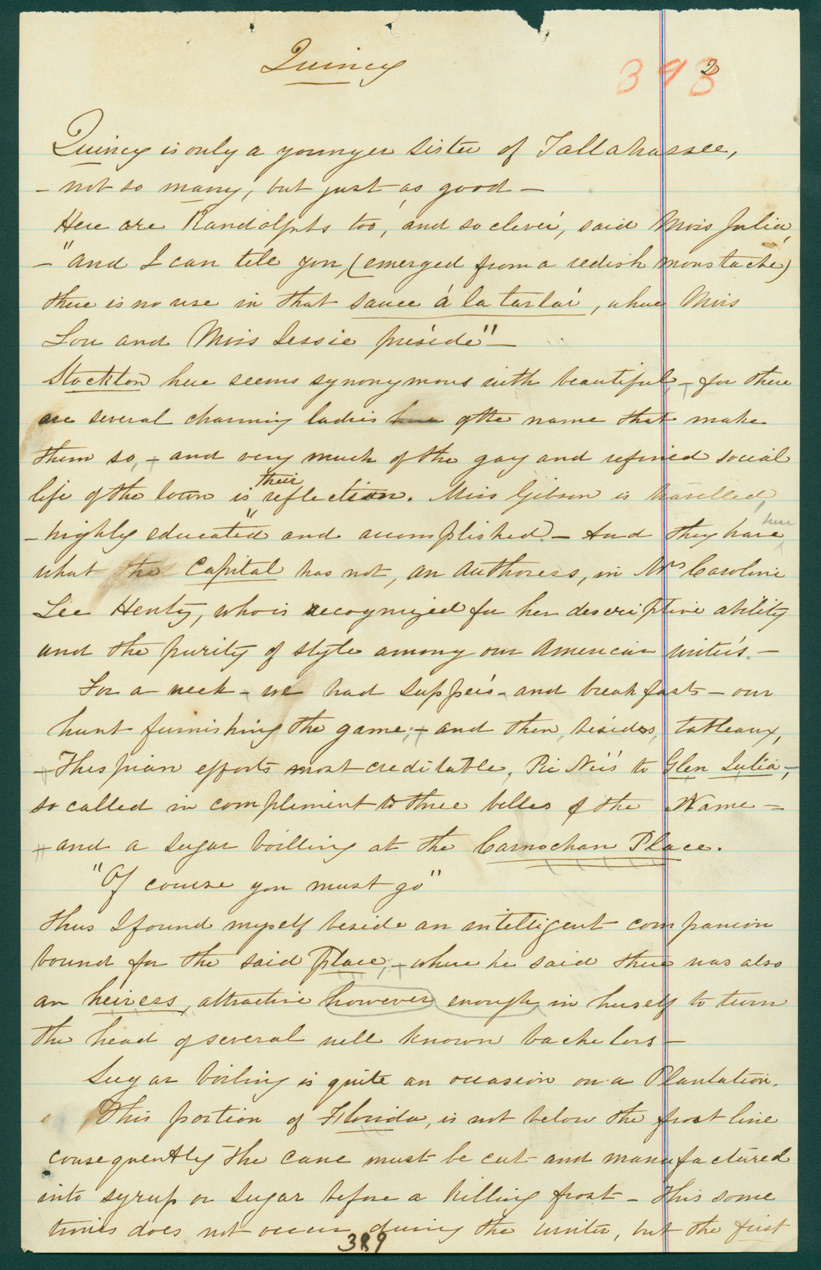 Quincy
393
2
Quincy is only a younger sister of Tallahassee,
- not so many, but just as good -
Here are Randolphs too, and so clever, said Miss Julia,
- "and I can tell you (emerged from a redish moustache)
there is no use in that sauce à la tartar, where Miss
Lou and Miss Jessie preside" -
Stockton here seems synonymous with beautiful, - for there
are several charming ladies here of the name that make
them so, - and very much of the gay and refined social
life of the town is their reflection. Miss Gibson is travelled,
- highly educated" and accomplished. - And they have here
what the Capital has not, an Authoress, in Mrs Caroline
Lee Hentz, who is recognized for her descriptive ability
and the purity of style among our American writers. -
For a week - we had suppers - and breakfasts - our
hunt furnishing the game; - and then, besides, tableaux,
- Thespian efforts most creditable, Pic Nics to Glen Julia, -
so called in compliment to three belles of the Name -
- and a sugar boiling at the Carnochan Place.
"Of course you must go"
thus I found myself beside an intelligent companion
bound for the said place, - where he said there was also
an heiress, attractive however enough in herself to turn
the head of several well known bachelors -
Sugar boiling is quite an occasion on a Plantation.
This portion of Florida, is not below the frost line
consequently the cane must be cut and manufactured
into syrup or sugar before a killing frost - This some
times does not occur during the winter, but the first
389